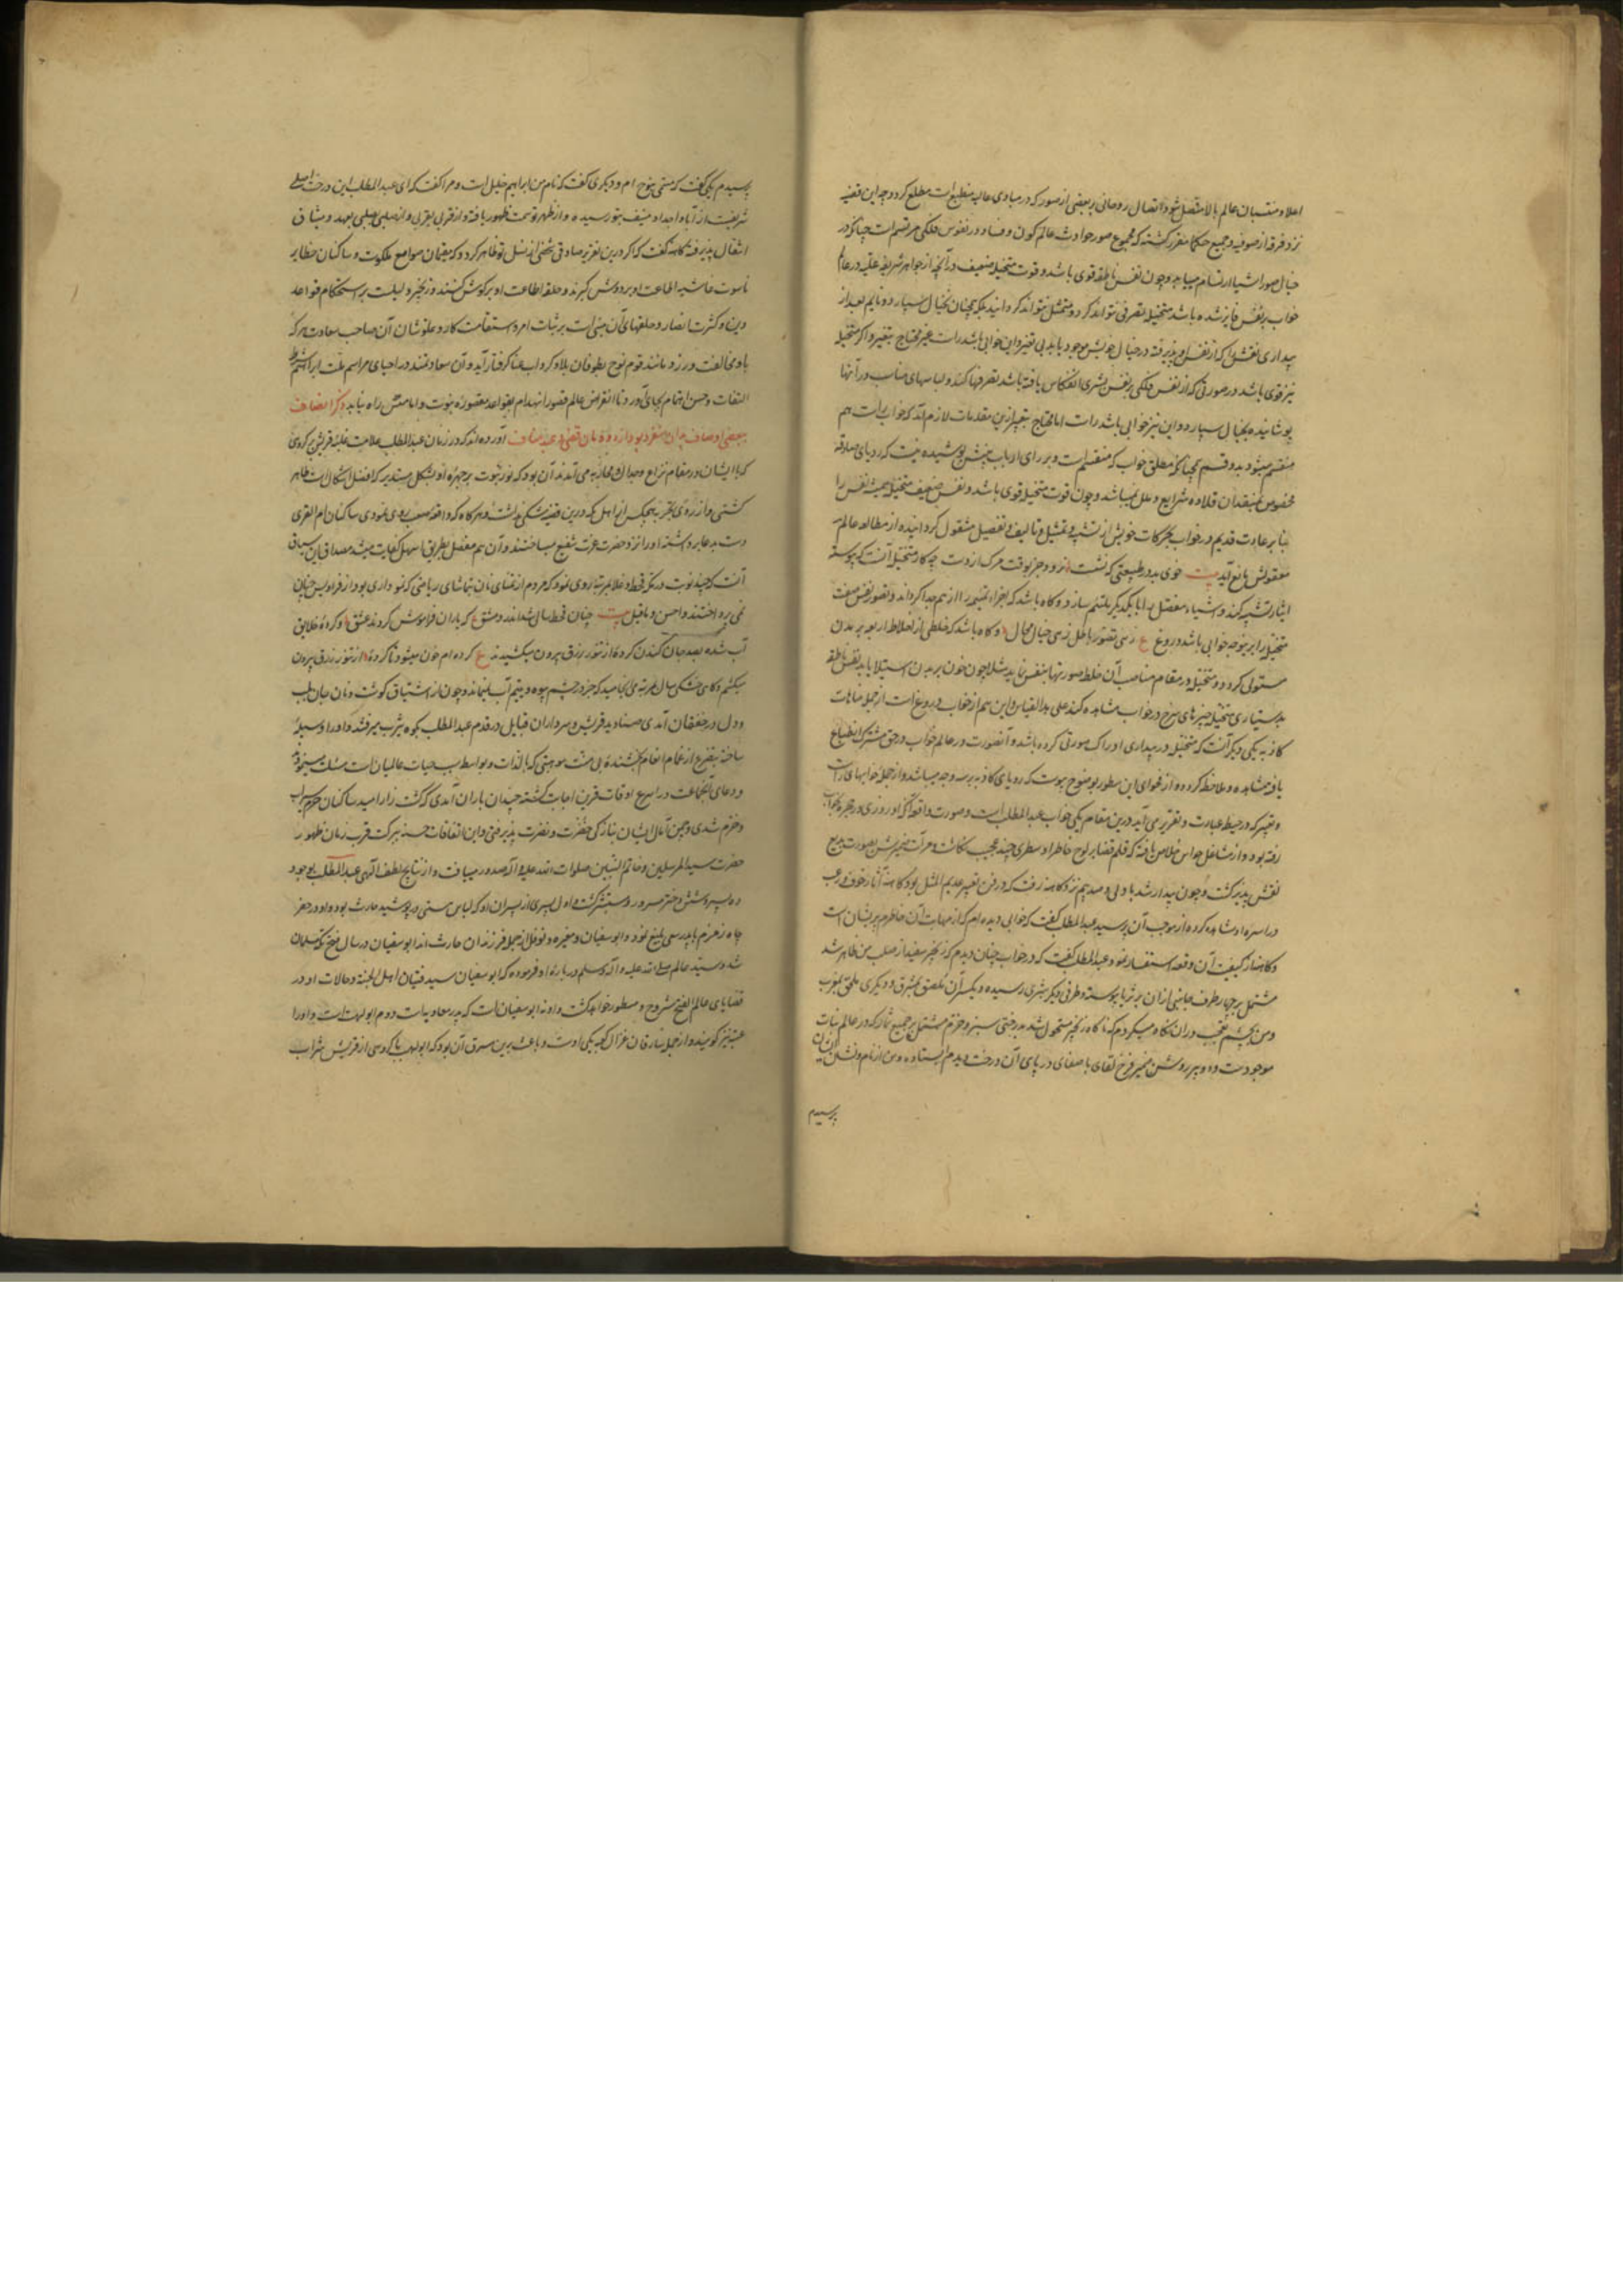 اعلا و منتسبان عالم بالا متصل شود و اتصال روحانی بر بعضی از صور که در مبادی عالیه منطبع است مطلع کردد چه این قضیه
نزد فرقه از صوفیه و جمیع حکما مقرر کشته که مجموع صور حوادث عالم کون و فساد در نفوس فلکی مرتسم است چنانکه در
خیال صور اشیا ارتسام مییابد و چون نفس ناطقه قوی باشد و قوت متخیله ضعیف در آنچه از جواهر شریفه علیه در عالم
خواب بر نفس فایز شده باشد متخیله تصرفی نتواند کرد و متمثل نتواند کردانید بلکه همچنان بخیال سپارد و نایم بعد از
بیداری نقش را که از نفس او پذیرفته در خیال خویش موجود یابد بی تغیر و این خوابی باشد راست غیر محتاج بتعبیر و اکر متخیله
نیز قوی باشد در صورتی که از نفس فلکی بر نفس بشری انعکاس یافته باشد تصرفها کند و لباسهای مناسب در آنها
پوشانیده بخیال سپارد و این نیز خوابی باشد راست اما محتاج بتعبیر ازین مقدمات لازم آمد که خواب راست هم
منقسم میشود بدو قسم همچنانکه مطلق خواب که منقسم است و بر رای ارباب بینش پوشیده نیست که رویای صادقه
مخصوص بمتقلدان قلاده شرایع و ملل نمیباشد و چون قوت متخیله قوی باشد و نفس ضعیف متخیله همیشه نفس را
بنابر عادت قدیم در خواب بحرکات خویش از تشبیه و تمثیل و تالیف و تفصیل مشغول کردانیده از مطالعه عالم
معقولش مانع آید بیت خوی بد در طبیعتی که نشست نرود جز بوقت مرک از دست چه کار متخیله آنست که پیوسته
اشیا را تشبیه کند و اشیاء مفصل را با یکدیکر ملتئم سازد و کاه باشد که اجزاء ملتئمه را از هم جدا کرداند و تصور نفس صفت
متخیله را بر نیوجه خوابی باشد دروغ ع زهی تصور باطل زهی خیال محال و کاه باشد که خلطی از اخلاط اربعه بر بدن
مستولی کردد و متخیله در مقام مناسب آن خلط صورتها بنفس نماید مثلا چون خون بر بدن استیلا یابد نفس ناطقه
بدستیاری متخیله چیزهای سرخ در خواب مشاهده کند علی هذا القیاس و این هم از خواب دروغ است از جمله منامات
کاذبه یکی دیکر آنست که متخیله در بیداری ادراک صورتی کرده باشد و آنصورت در عالم خواب در حق مشترک انطباع
یافته مشاهده و ملاحظه کردد و از فحوای این سطور بوضوح پیوست که رویای کاذبه بر سه وجه میباشد و از جمله خوابهای راست
و تعبیر که در حیطه عبارت و تقریری آید درین مقام یکی خواب عبد المطلب است و صورت واقعه آنکه او روزی در حجره بخواب
رفته بود و از مشاغل حواس خلاص یافته که قلم قضا بر لوح خاطر او سطری چند عجیب نکاشت و مرآت ضمیرش بصورت بدیع
نقش پذیر کشت و چون بیدار شد با دلی دونیم نزد کاهنه رفت که در فن تعبیر عدیم المثل بود کاهنه آثار خوف و رعب
در اسره او مشاهده کرده از موجب آن پرسید عبد المطلب کفت که خوابی دیده ام که از مهابت آن خاطرم پریشان است
و کاهنه از کیفیت آن وقعه استفسار نمود عبد المطلب کفت که در خواب چنان دیدم که زنجیر سفید از صلب من ظاهر شد
مشتمل بر چهار طرف جانبی از آن بر ثریا پیوسته و طرفی دیکر بثری رسیده و یکسر آن ملصق بمشرق و دیکری ملحق بمغرب
و من بچشم تعجب در آن نکاه میکردم که ناکاه زنجیر متحول شد بدرختی سبز و خرم مشتمل بر جمیع ثمار که در عالم نبات
موجودست و دو پیر روشن ضمیر فرخ لقای باصفای در پای آن درخت دیدم ایستاده و من از نام و نشان ایشان
پرسیدم
پرسیدم یکی کفت که مسمی بنوح ام و دیکری کفت که نام من ابراهیم خلیل است و مرا کفت که ای عبد المطلب این درخت اصلی
شریفست از آبا و اجداد منیف بتو رسیده و از ظهر تو سمت ظهور یافته و از قرنی بقرنی و از صلبی بصلبی بعهد و میثاق
انتقال پذیرفته کاهنه کفت که اکر درین تعبیر صادقی شخصی از نسل تو ظاهر کردد که مقیمان صوامع ملکوت و ساکنان حظایر
ناسوت غاشیه اطاعت او بر دوش کیرند و حلقه اطاعت او بر کوش کشند و زنجیر دلیلست بر استحکام قواعد
دین و کثرت انصار و حلقهای آن مبنی است بر ثبات امر و استقامت کار و علو شان آن صاحب سعادت هر که
با او مخالفت ورزد مانند قوم نوح بطوفان بلا و کرداب عنا کرفتار آید و آن سعادتمند در احیای مراسم ملت ابراهیم شرایط
التفات و حسن اهتمام بجای آورد تا انقراض عالم قصور انهدام بقواعد مقصوره نبوت و امامتش راه نیابد ذکر اتصاف
آورده اند که در زمان عبد المطلب علامت غلبه قریش بر کروهی
که با ایشان در مقام نزاع و جدال و محاربه می آمدند آن بود که نور نبوت بر چهره او بشکل مستدیر که افضل اشکال است ظاهر
کشتی و از روی تجربه هیچکس از اهل مکه درین قضیه شکی نداشت و هرکاه که واقعه صعب روی نمودی ساکنان ام القری
دست بدعا برداشته او را نزد حضرت عزت شفیع میساختند و آن مهم معضل بطریق اسهل کفایت میشد مصداق این سیاق
آنست که چند نوبت در مکه قحط و غلا بمرتبه روی نمود که مردم از تمنای نان بتماشای ریاضی که نموداری بود از فرادیس جنان
نمی پرداختند و احسن ما قیل بیت چنان قحط سالی شد اندر دمشق که یاران فراموش کردند عشق و کروه خلایق
آب شده بعد جان کندن کرده از تنور رزق بیرون میکشیدند ع کرده ام خون میشود تا کرده از تنور رزق بیرون
میکشم و کاهی خشکی سال بمرتبه ی انجامید که جز در چشم بیوه و یتیم آب نمیماند و چون از اشتیاق کوشت و نان جان بلب
و دل در خفقان آمدی صنادید قریش و سرداران قبایل در قدم عبد المطلب بکوه یثرب میرفتند و او را وسیله
ساخته بتضرع از غمام انعام بخشنده بی منت موهبتی که بالذات و بواسطه سبب حیات عالمیان است مسئلت مینمودند
و دعای آنجماعت در اسرع اوقات قرین اجابت کشته چندان باران آمدی که کشت زار امید ساکنان حرم سیراب
و خرم شدی و چمن آمال ایشان بتازکی خضرت و نضرت پذیرفتی و این اتفاقات حسنه ببرکت قرب زمان ظهور
حضرت سید المرسلین و خاتم النبیین صلوات الله علیه و آله صدور مییافت و از نتایج لطف الهی عبد المطلب بوجود
ده پسر و شش دختر مسرور و مستبشر کشت و اول پسری از پسران او که لباس هستی در پوشید حارث بود و او در حفر
چاه زمزم با پدر سعی بلیغ نمود و ابو سفیان و مغیره و نوفل از جمله فرزندان حارث اند ابو سفیان در سال فتح مکه مسلمان
شد و سید عالم صلی الله علیه و آله وسلم درباره او فرموده که ابو سفیان سید فتیان اهل الجنة و حالات او در
قضایای عالم الفتح مشروح و مسطور خواهد کشت و او نه ابو سفیان است که پدر معاویه است دوم ابو لهب است و او را
عبد العزی نیز کویند و از جمله سارقان غزال کعبه یکی اوست و باعث برین سرق آن بود که ابو لهب با کروهی از قریش شراب